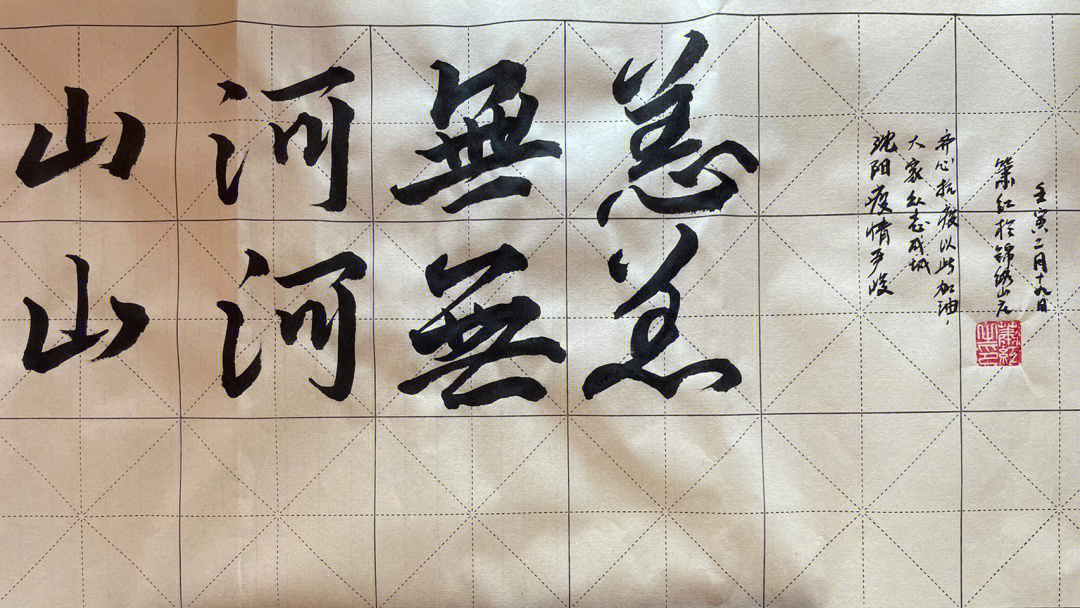 山河無恙
山河無恙
沈阳疫情严峻
大家众志成城
齐心抗疫以此加油，
萧红於锦绣山庄
壬寅二月十九日